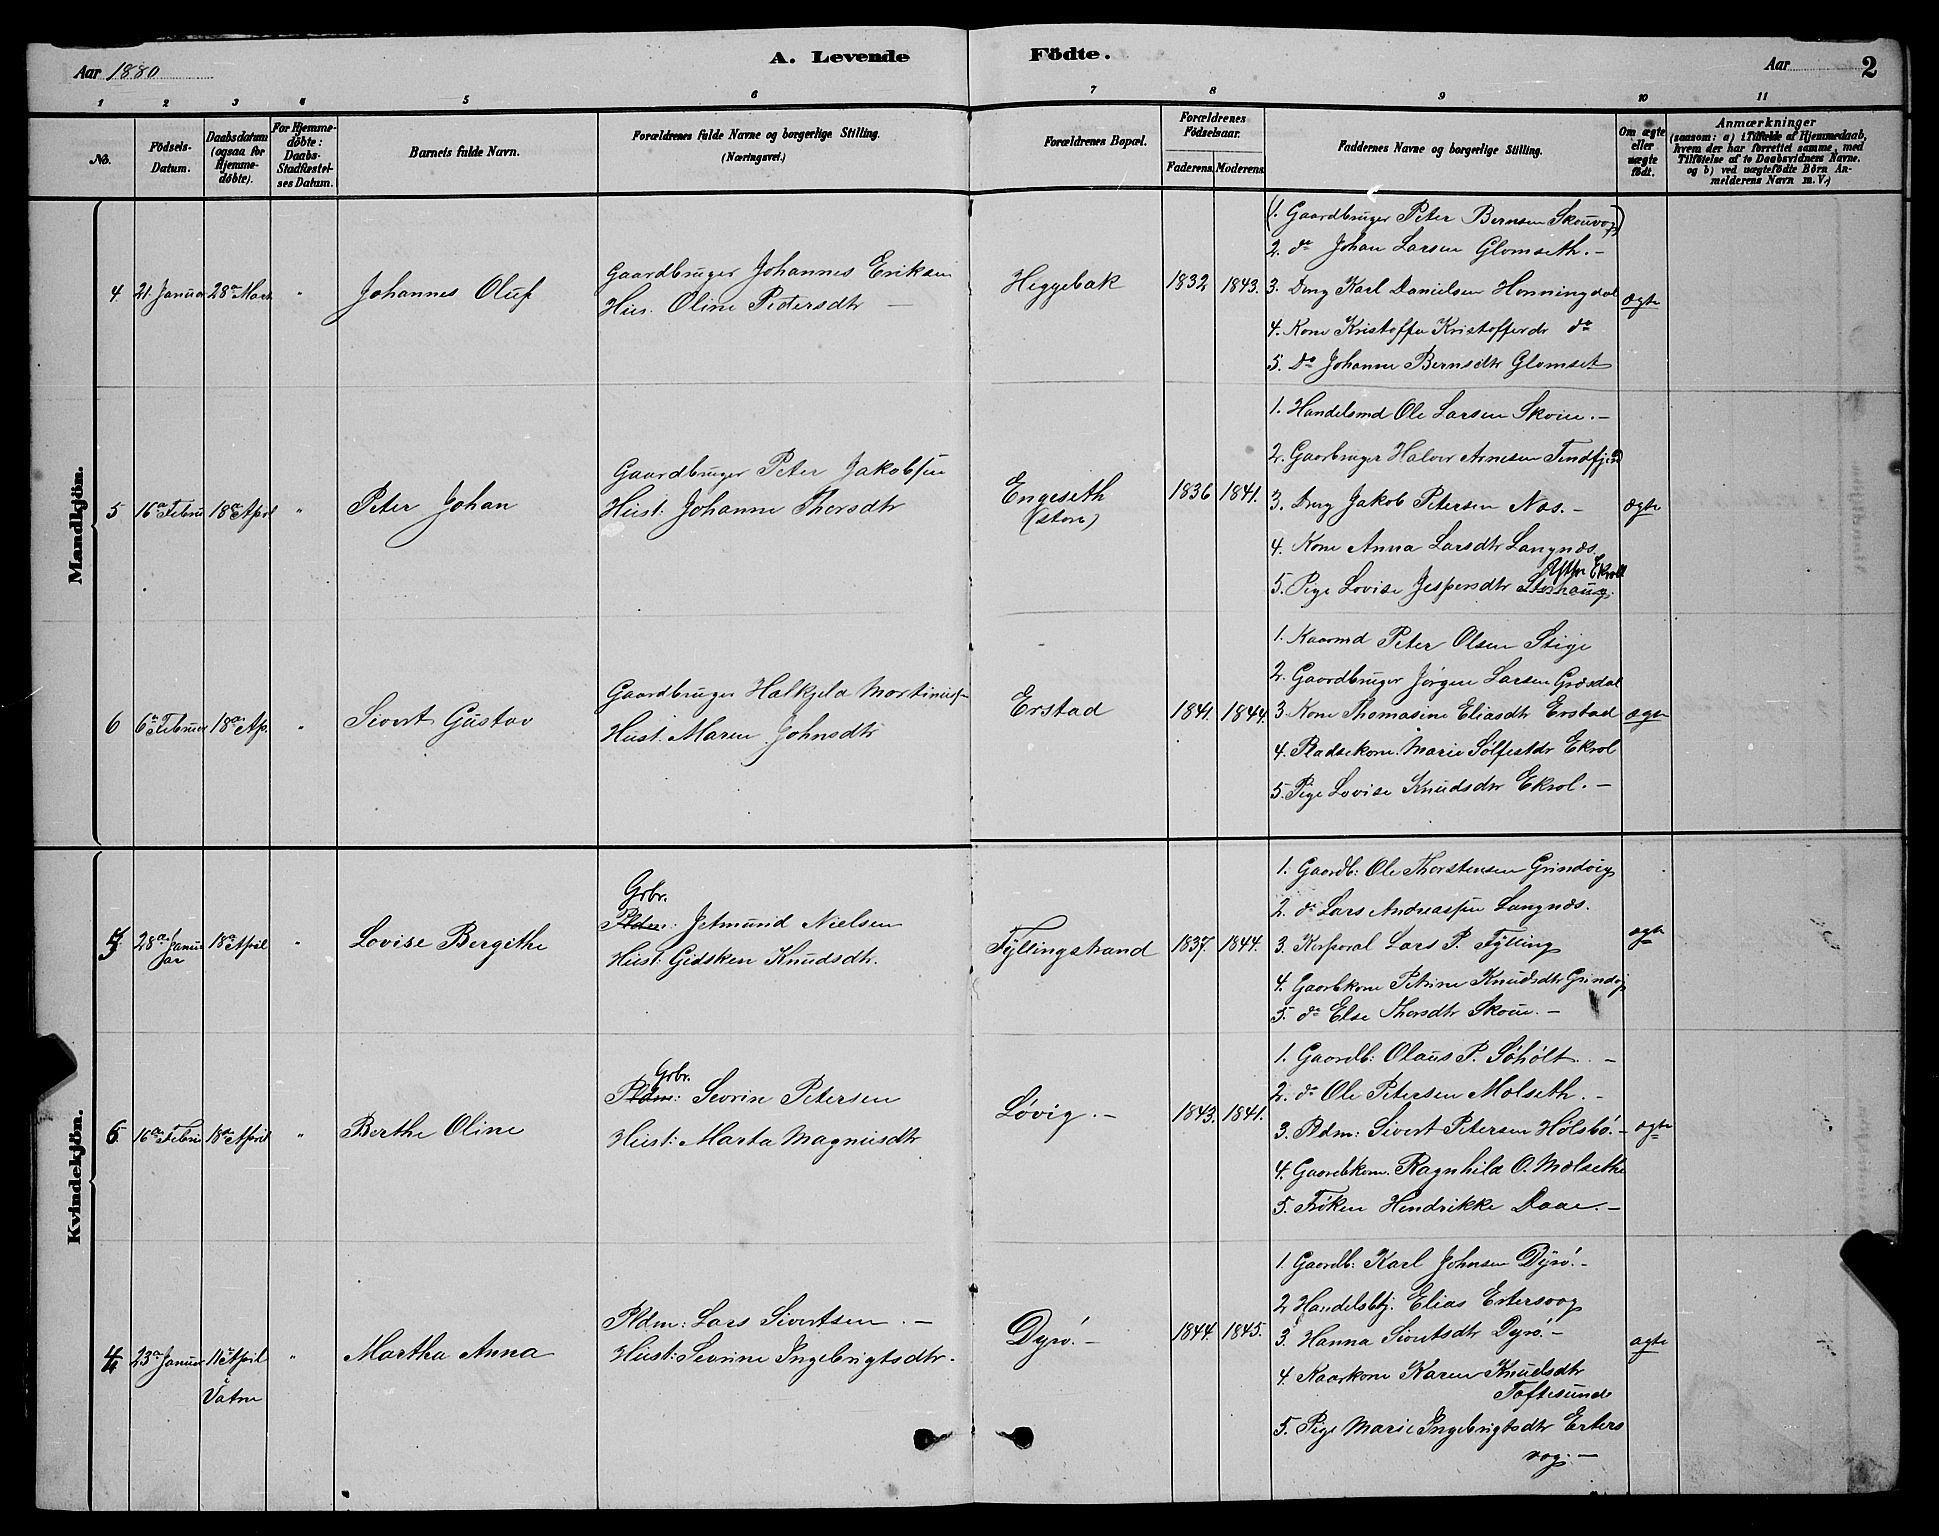 Aar 1880
A. Levende Födte.
Aar
2
1 2 3 4 5 6 7 8 9 10 11
No.
Födsels-
Datum.
Daabsdatum
(ogsaa for
Hjemme-
döbte).
For Hjemme-
döbte:
Daabs-
Stadfæstel-
ses Datum.
Barnets fulde Navn.
Forældrenes fulde Navne og borgerlige Stilling.
(Næringsvei.)
Forældrenes Bopæl.
Forældrenes
Födselsaar.
Faderens. Moderens.
Faddernes Navne og borgerlige Stilling.
Om ægte
eller
uægte
födt.
Anmærkninger
(saasom: a) i Tilfælde af Hjemmedaab,
hvem der har forrettet samme, med
Tilföielse af to Daabsvidners Navne.
og b) ved uægtefödte Börn An-
melderens Navn m. V.)
Mandkjön.
4 21 Januar 28de Marts "
Johannes Oluf
Gaardbruger Johannes Eriksen
Hus. Oline Petersdtr —
Heggebak
1832 1843.
(1. Gaardbruger Peter Bernsen Skouvog)
2. do Johan Larsen Glomseth. –
3. Dreng Karl Danielsen Honningdal
4. Kone Kristoffa Kristofferdr do
5. Do Johanne Bernsdtr Glomset
ægte
5 16de Febru 18de April "
Peter Johan
Gaardbruger Peter Jakobsen
Hust: Johanne Thorsdtr
Engeseth
(store)
1836 1841.
1. Handelsmd Ole Larsen Skoue. –
2. Gaarbruger Halvor Arnesen Tindfjord
3. Dreng Jakob Petersen Nos. –
4. Kone Anna Larsdtr Langnæs.
5. Pige Lovise Jespersdtr Storhaug.
Ekroll
ægte
6 6te Februar 18de Ap. "
Sivert Gustav
Gaardbruger Halkjeld Martinuss–
Hust. Maren Johnsdtr
Erstad
1841. 1844.
1. Kaarmd Peter Olsen Stige
2. Gaardbruger Jörgen Larsen Græsdal
3. Kone Thomasine Eliasdtr Erstad
4. Pladsekone. Marie Sölfestdr Ekrol
5. Pige Lovise Knudsdtr Ekrol. –
ægte
Kvindekjön.
5 28de Janu
ar 18de April "
Lovise Bergithe
Grbr.
Pldm: Jetmund Nielsen
Hust: Gidsken Knudsdtr.
Fyllingstrand
1837. 1844.
1. Gaardb: Ole Thorstensen Grindvig
2. do Lars Andreassen Langnæs.
3. Korporal Lars P. Fylling
4. Gaardkone Petrine Knudsdtr Grindvig
5. do Else Thorsdtr Skoue. –
ægte
6 16de Febru 18de April "
Berthe Oline
Grbr.
Pldm: Severin Petersen
Hust: Marta Magnusdtr
Løvig. –
1843. 1841.
1. Gaardb: Olaus P. Söholt. –
2. do Ole Petersen Molseth. –
3. Pldm: Sivert Petersen Holsbö. –
4. Gaardkone. Ragnhild O. Molseth
5. Fröken Hendrikke Daae. –
ægte
4 23de Januar 11te April
i
Vatne "
Martha Anna
Pldm: Lars Sivertsen. –
Hust: Sevrine Ingebrigtsdtr.
Dyrö. –
1844. 1845.
1. Gaardb: Karl Johnsen Dyrö. –
2 Handelsbtj. Elias Ertersvog
3. Hanna Sivertsdtr Dyrö. –
4. Kaarkone Karen Knudsdtr
Toftesunde
5. Pige Marie Ingebrigtsdtr Erters
vog. –
ægte